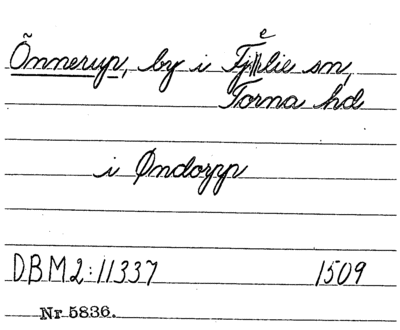 Õnnerup, by i Fjelie sn,
Torna hd
i Øndorpp
DBM2:11337 1509
Nr 5836.